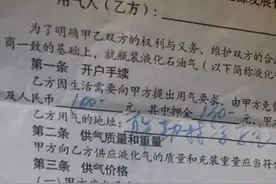 用气人(乙方):
为了明确甲乙双方的权利与义务,维护双方的合
商一致的基础上,就瓶装液化石油气(以下简称液化
第一条 开户手续
乙方因生活需要向甲方提出用气要求,由甲方免
及人民币 100- 元,其中押金 元,
乙方用气的地址:
第二条 供气质量和重量
甲方向乙方供应液化气的质量和充装重量应当符
第三条 供气价格